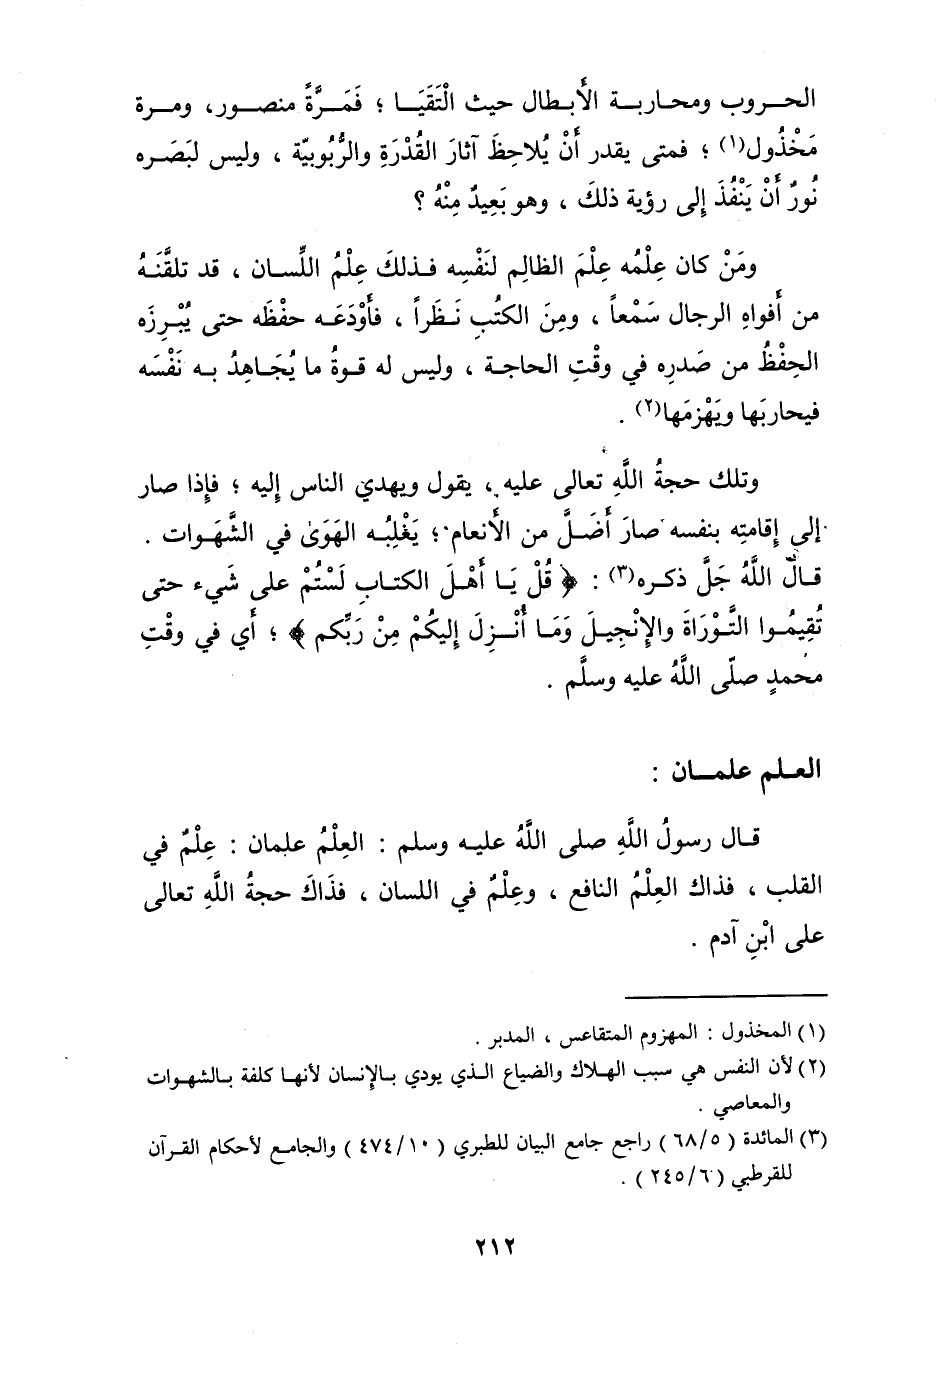 الحروب ومحاربة الأَبطال حيث الْتَقَيَا ؛ فَمَرَّةً منصور، ومرة
مَخْذُول(١) ؛ فمتى يقدر أَنْ يُلاحِظَ آثارَ القُدْرَةِ والرُّبُوبيّة ، وليس لبَصَره
نُورٌ أَنْ يَنْفُذَ إِلى رؤية ذلكَ ، وهو بَعِيدٌ مِنْهُ ؟
ومَنْ كان عِلْمُه عِلْمَ الظالِم لنَفْسِه فذلكَ عِلْمُ اللِّسان ، قد تلقَّنَهُ
من أَفواهِ الرجال سَمْعاً ، ومِنَ الكتُبِ نَظَراً ، فأَوْدَعَه حفْظَه حتى يُبْرِزَه
الحِفْظُ من صَدرِه في وقْتِ الحاجة ، وليس له قوةُ ما يُجَاهِدُ به نَفْسَه
فيحاربَها ويَهْزمَها(٢) .
وتلك حجةُ اللَّهِ تعالى عليه ، يقول ويهدي الناس إِليه ؛ فإِذا صار
إِلى إِقامتِه بنفسه صارَ أَضَلَّ من الأَنعام ؛ يَغْلِبُه الهَوَىٰ في الشَّهَوات .
قالَ اللَّهُ جَلَّ ذكره(٣) : ﴿ قُلْ يَا أَهْلَ الكتابِ لَسْتُمْ على شَيء حتى
تُقِيمُوا التَّوْرَاةَ والإِنْجيلَ وَمَا أُنْزِلَ إِليكُمْ مِنْ رَبِّكم ﴾ ؛ أَي في وقْتِ
محمدٍ صلّى اللَّهُ عليه وسلَّم .
العلم علمان :
قال رسولُ اللَّهِ صلى اللَّهُ عليه وسلم : العِلْمُ علمان : عِلْمٌ في
القلب ، فذاك العِلْمُ النافع ، وعِلْمٌ في اللسان ، فذَاكَ حجةُ اللَّهِ تعالى
على ابْنِ آدم .
(١) المخذول : المهزوم المتقاعس ، المدبر .
(٢) لأن النفس هي سبب الهلاك والضياع الذي يودي بالإنسان لأنها كلفة بالشهوات
والمعاصي .
(٣) المائدة ( ٦٨/٥ ) راجع جامع البيان للطبري ( ٤٧٤/١٠ ) والجامع لأحكام القرآن
للقرطبي ( ٢٤٥/٦ ) .
٢١٢